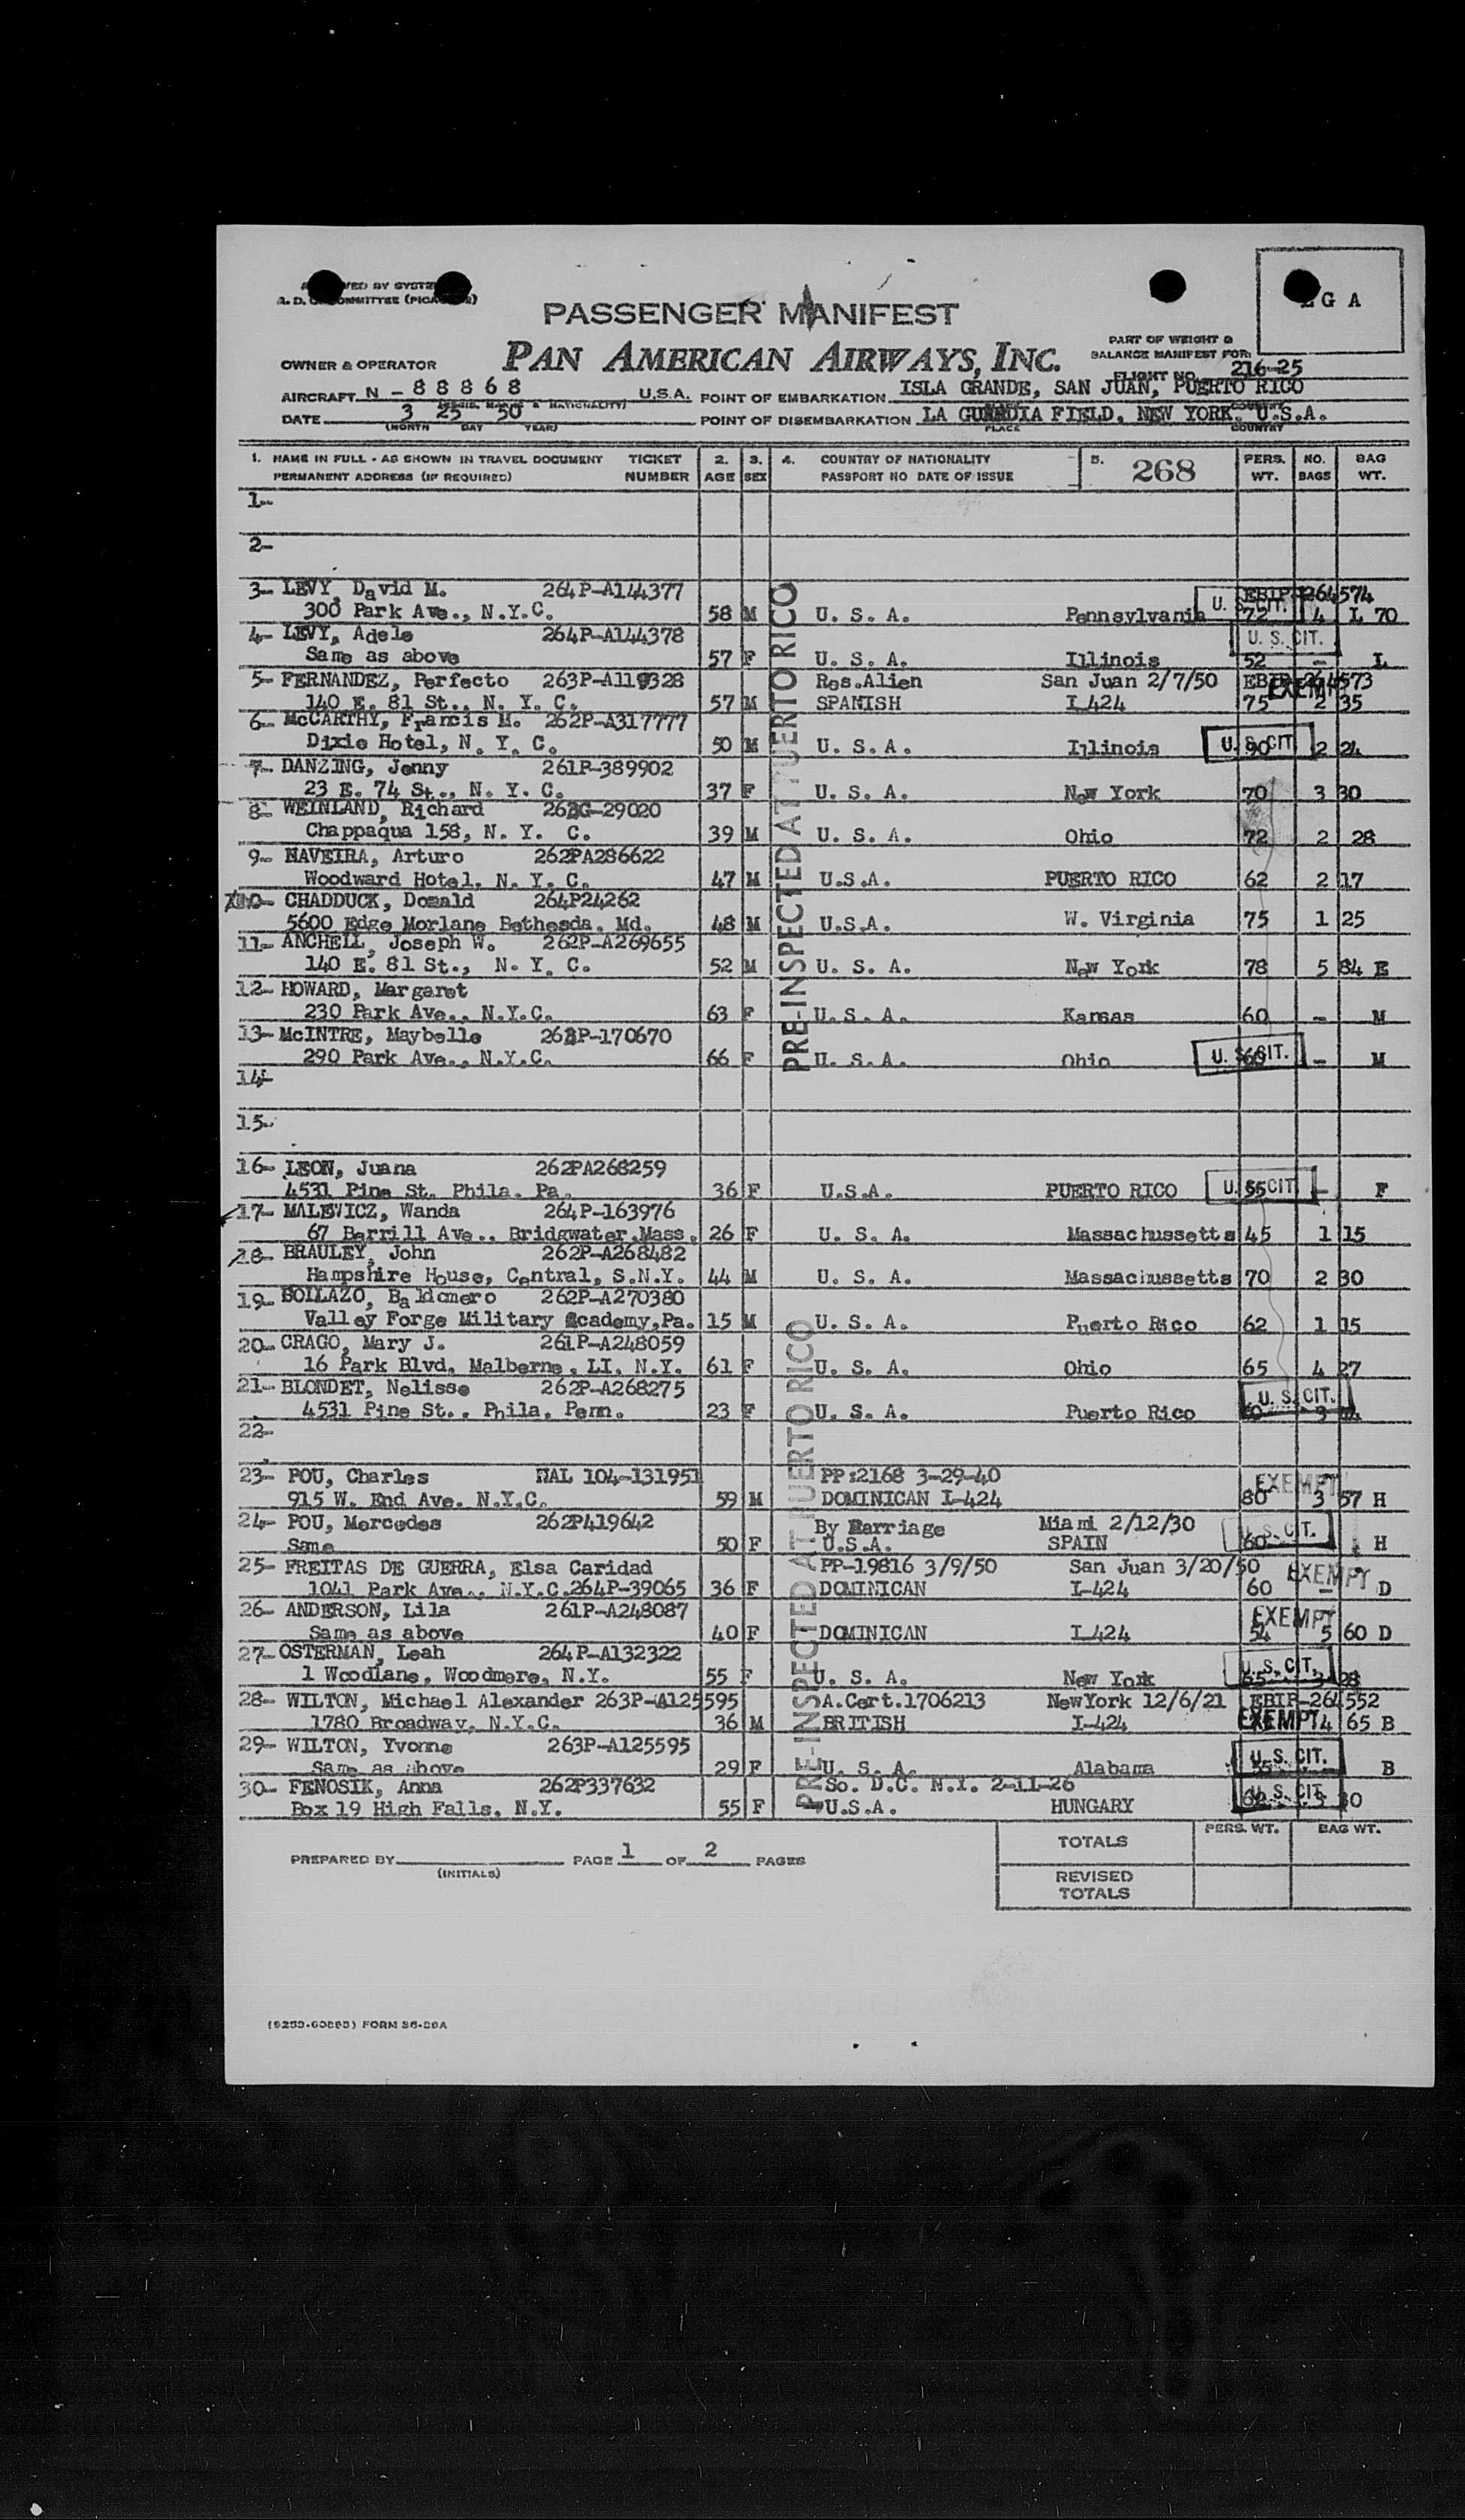 PASSENGER MANIFEST
PAN AMERICAN AIRWAYS, INC.
G A
PART OF WEIGHT &
BALANCE MANIFEST FOR:
FLIGHT NO. 216-25
OWNER & OPERATOR
AIRCRAFT N - 8 8 8 6 8 U.S.A. POINT OF EMBARKATION ISLA GRANDE, SAN JUAN, PUERTO RICO
DATE 3 25 50 POINT OF DISEMBARKATION LA GUARDIA FIELD, NEW YORK, U.S.A.
(MONTH DAY YEAR) PLACE COUNTRY
1. NAME IN FULL - AS SHOWN IN TRAVEL DOCUMENT TICKET 2. 3. 4. COUNTRY OF NATIONALITY 5. 268 PERS. NO. BAG
PERMANENT ADDRESS (IF REQUIRED) NUMBER AGE SEX PASSPORT NO DATE OF ISSUE WT. BAGS WT.
1-
2-
3- LEVY, David M. 264P-A144377 EBIP-264574
300 Park Ave., N.Y.C. 58 M U. S. A. Pennsylvania U. S. CIT. 72 4 L 70
4- LEVY, Adele 264P-A144378 U. S. CIT.
Same as above 57 F U. S. A. Illinois 52 - L
5- FERNANDEZ, Perfecto 263P-A119328 Res.Alien San Juan 2/7/50 EBIP-264573
140 E. 81 St., N. Y. C. 57 M SPANISH I-424 EXEMPT 75 2 35
6- McCARTHY, Francis M. 262P-A317777
Dixie Hotel, N. Y. C. 50 M U. S. A. Illinois U. S. CIT 90 2 24
7- DANZING, Jenny 261P-389902
23 E. 74 St., N. Y. C. 37 F U. S. A. New York 70 3 30
8- WEINLAND, Richard 263G-29020
Chappaqua 158, N. Y. C. 39 M U. S. A. Ohio 72 2 28
9- NAVEIRA, Arturo 262PA286622
Woodward Hotel, N. Y. C. 47 M U.S.A. PUERTO RICO 62 2 17
10- CHADDUCK, Donald 264P24262
5600 Edge Morlane Bethesda, Md. 48 M U.S.A. W. Virginia 75 1 25
11- ANCHELL, Joseph W. 262P-A269655
140 E. 81 St., N. Y. C. 52 M U. S. A. New York 78 5 84 E
12- HOWARD, Margaret
230 Park Ave., N.Y.C. 63 F U. S. A. Kansas 60 - M
13- McINTRE, Maybelle 263P-170670
290 Park Ave., N.Y.C. 66 F U. S. A. Ohio U. S. CIT. - M
PRE-INSPECTED AT PUERTO RICO
14-
15-
16- LEON, Juana 262PA268259
4531 Pine St. Phila. Pa. 36 F U.S.A. PUERTO RICO U. S. CIT 55 - F
17- MALEWICZ, Wanda 264P-163976
67 Berrill Ave., Bridgwater,Mass. 26 F U. S. A. Massachussetts 45 1 15
18- BRAULEY, John 262P-A268482
Hampshire House, Central, S.N.Y. 44 M U. S. A. Massachussetts 70 2 30
19- COLLAZO, Baldomero 262P-A270380
Valley Forge Military Academy,Pa. 15 M U. S. A. Puerto Rico 62 1 15
20- CRAGO, Mary J. 261P-A248059
16 Park Blvd, Malberne, LI, N.Y. 61 F U. S. A. Ohio 65 4 27
21- BLONDET, Nelisse 262P-A268275
4531 Pine St., Phila, Penn. 23 F U. S. A. Puerto Rico U. S. CIT. 3
22-
23- POU, Charles NAL 104-131951 PP:2168 3-29-40 EXEMPT
915 W. End Ave. N.Y.C. 59 M DOMINICAN I-424 80 3 57 H
24- POU, Mercedes 262P419642 By Marriage Miami 2/12/30
Same 50 F U.S.A. SPAIN U. S. CIT. 60 H
25- FREITAS DE GUERRA, Elsa Caridad PP-19816 3/9/50 San Juan 3/20/50
1041 Park Ave., N.Y.C.264P-39065 36 F DOMINICAN I-424 60 EXEMPT - D
26- ANDERSON, Lila 261P-A248087 EXEMPT
Same as above 40 F DOMINICAN I-424 54 5 60 D
27- OSTERMAN, Leah 264P-A132322
1 Woodlane, Woodmere, N.Y. 55 F U. S. A. New York U. S. CIT. 65 3 28
28- WILTON, Michael Alexander 263P-A125595 A.Cert.1706213 NewYork 12/6/21 EBIP-264552
1780 Broadway, N.Y.C. 36 M BRITISH I-424 EXEMPT 4 65 B
29- WILTON, Yvonne 263P-A125595
Same as above 29 F U. S. A. Alabama U. S. CIT. 55 - B
30- FENOSIK, Anna 262P337632 So. D.C. N.Y. 2-11-26
Box 19 High Falls, N.Y. 55 F U.S.A. HUNGARY U. S. CIT. 3 30
PRE-INSPECTED AT PUERTO RICO
PERS. WT. BAG WT.
TOTALS
PREPARED BY PAGE 1 OF 2 PAGES
(INITIALS)
REVISED
TOTALS